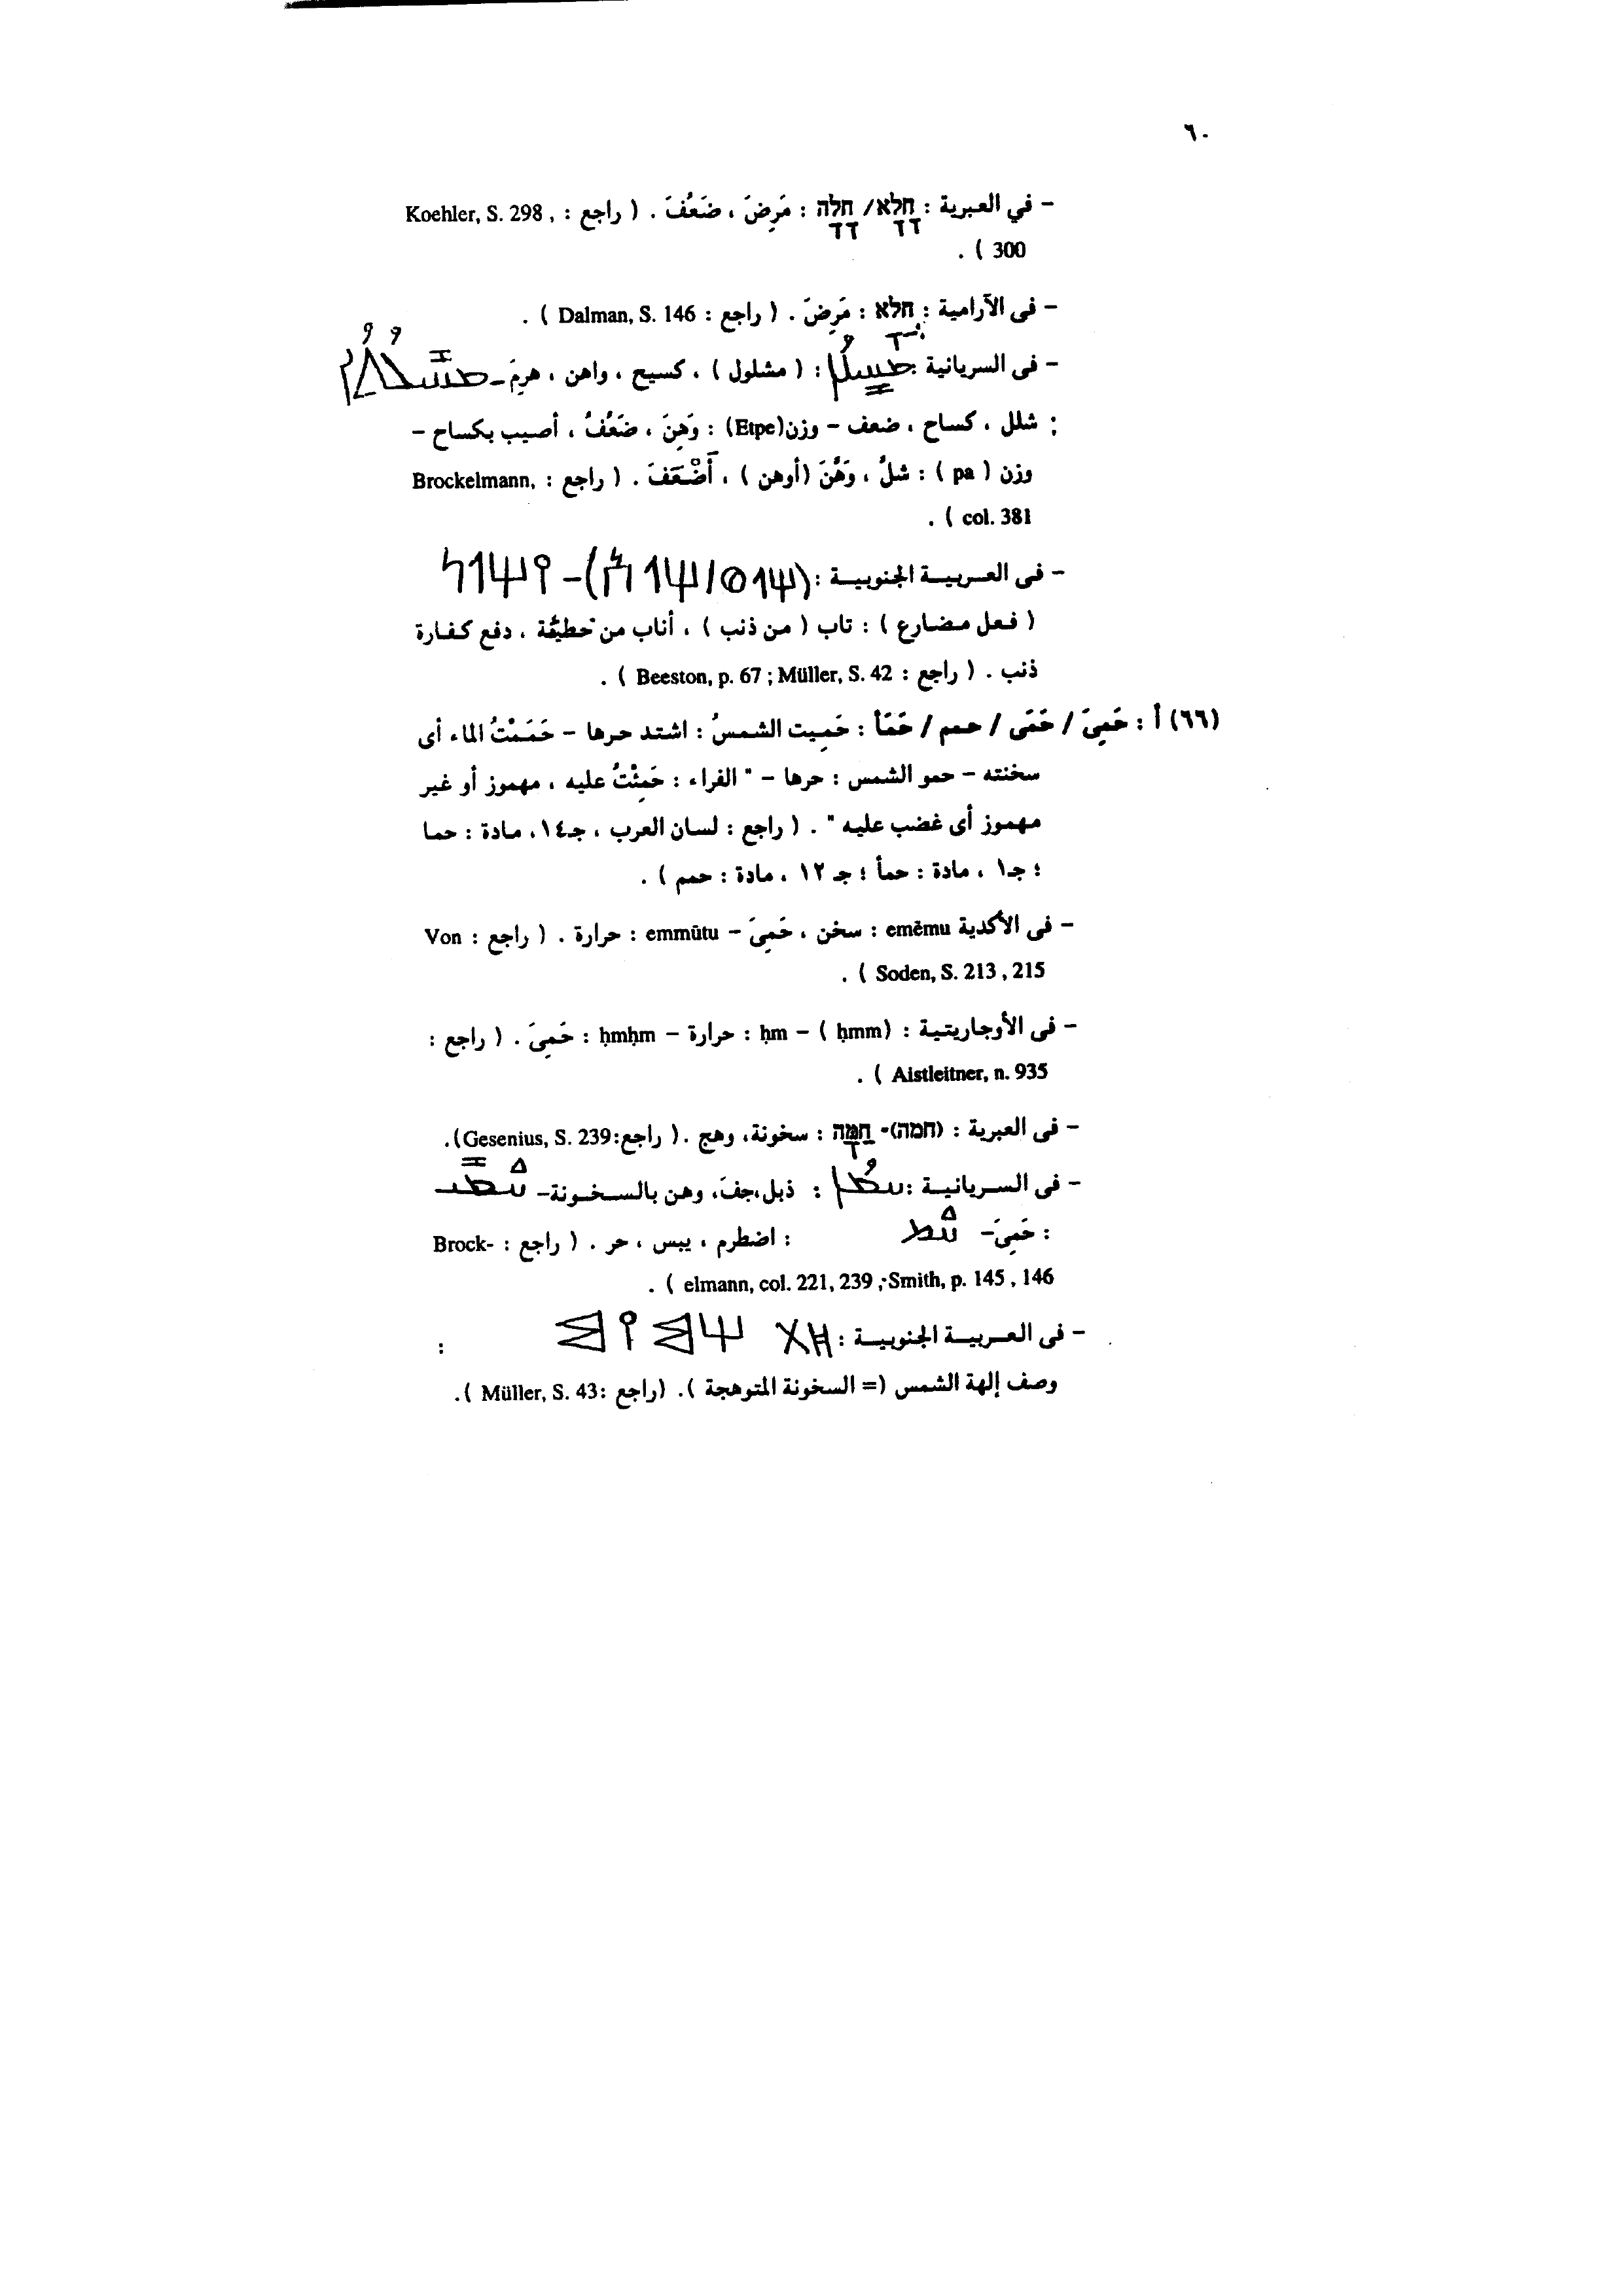 ٦٠
– في العبرية : חלא / חלה : مَرِضَ ، ضَعُفَ . ( راجع : Koehler, S. 298 ,
300 ) .
– فى الآرامية : חלא : مَرِضَ . ( راجع : Dalman, S. 146 ) .
– فى السريانية : : ( مشلول ) ، كسيح ، واهن ، هرِمَ –
: شلل ، كساح ، ضعف – وزن (Etpe) : وَهِنَ ، ضَعُفُ ، أصيب بكساح –
وزن ( pa ) : شلُّ ، وَهَّنَ (أوهن ) ، أَضْعَفَ . ( راجع : Brockelmann,
col. 381 ) .
– فى العـربيـة الجنوبيـة : (𐩢𐩡𐩥/𐩢𐩡) – 𐩺𐩢𐩡𐩬
( فـعل مـضـارع ) : تاب ( من ذنب ) ، أناب من خطيئة ، دفع كـفـارة
ذنب . ( راجع : Beeston, p. 67 ; Müller, S. 42 ) .
(٦٦) أ : حَمِيَ / حَمَى / حمم / حَمَأ : حَمِيت الشمسُ : اشتد حرها – حَمَمْتُ الماء أى
سخنته – حمو الشمس : حرها – " الفراء : حَمِئْتُ عليه ، مهموز أو غير
مهموز أى غضب عليه " . ( راجع : لسان العرب ، جـ١٤، مادة : حما
؛ جـ١ ، مادة : حمأ ؛ جـ ١٢ ، مادة : حمم ) .
– فى الأكدية emēmu : سخن ، حَمِيَ – emmūtu : حرارة . ( راجع : Von
Soden, S. 213 , 215 ) .
– فى الأوجاريتية : (ḥmm ) – ḥm : حرارة – ḥmḥm : حَمِيَ . ( راجع :
Aistleitner, n. 935 ) .
– فى العبرية : (חמה)- חַמָּה : سخونة، وهج . ( راجع: Gesenius, S. 239).
– فى السـريانيـة : : ذبل، جفَ، وهن بالسـخـونة–
: حَمِيَ– : اضطرم ، يبس ، حر . ( راجع : Brock-
elmann, col. 221, 239 ; Smith, p. 145 , 146 ) .
– فى العـربيـة الجنوبيـة : 𐩹𐩩 𐩢𐩣𐩺𐩣 :
وصف إلهة الشمس (= السخونة المتوهجة ). (راجع : Müller, S. 43 ).